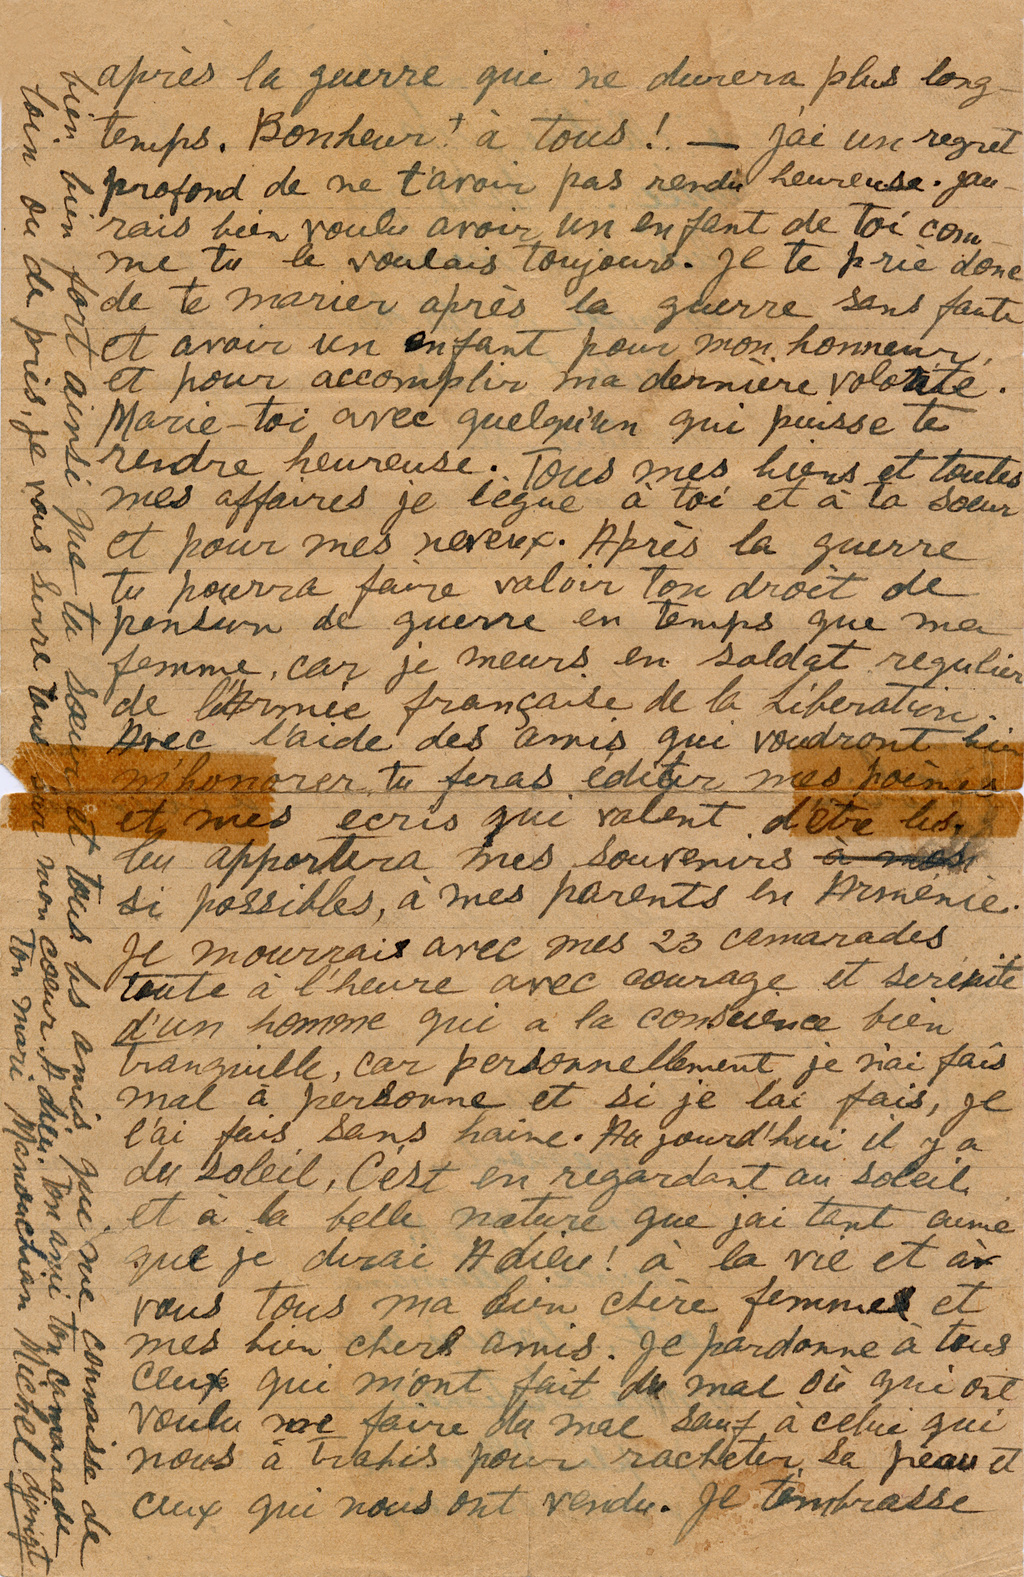 après la guerre qui ne durera plus long-
temps. Bonheur ! à tous ! — j'ai un regret
profond de ne t'avoir pas rendu heureuse. j'au-
rais bien voulu avoir un enfant de toi com
me tu le voulais toujours. Je te prie donc
de te marier après la guerre sans faute
et avoir un enfant pour mon honneur,
et pour accomplir ma dernière volonté.
Marie-toi avec quelqu'un qui puisse te
rendre heureuse. Tous mes biens et toutes
mes affaires je lègue à toi et à ta sœur
et pour mes neveux. Après la guerre
tu pourra faire valoir ton droit de
pension de guerre en temps que ma
femme, car je meurs en soldat regulier
de l'Armée française de la Libération.
Avec l'aide des amis qui voudront bien
m'honorer, tu feras éditer mes poèmes
et mes ecris qui valent d'être lus.
tu apportera mes souvenirs
si possibles, à mes parents en Arménie.
Je mourrais avec mes 23 camarades
toute à l'heure avec courage et serénité
d'un homme qui a la conscience bien
tranquille, car personnellement je n'ai fais
mal à personne et si je l'ai fais, je
l'ai fais sans haine. Aujourd'hui il y a
du soleil, C'est en regardant au soleil
et à la belle nature que j'ai tant aimé
que je dirai Adieu ! à la vie et à
vous tous ma bien chère femme et
mes bien chers amis. Je pardonne à tous
ceux qui m'ont fait du mal où qui ont
voulu me faire du mal sauf à celui qui
nous à trahis pour racheter sa peau et
ceux qui nous ont vendu. Je t'embrasse
bien bien fort ainsi que ta sœur et tous les amis qui me connaisse de
loin ou de près, je vous serre tous sur mon cœur. Adieu. Ton ami ton camarade
Ton mari Manouchian Michel djanigt